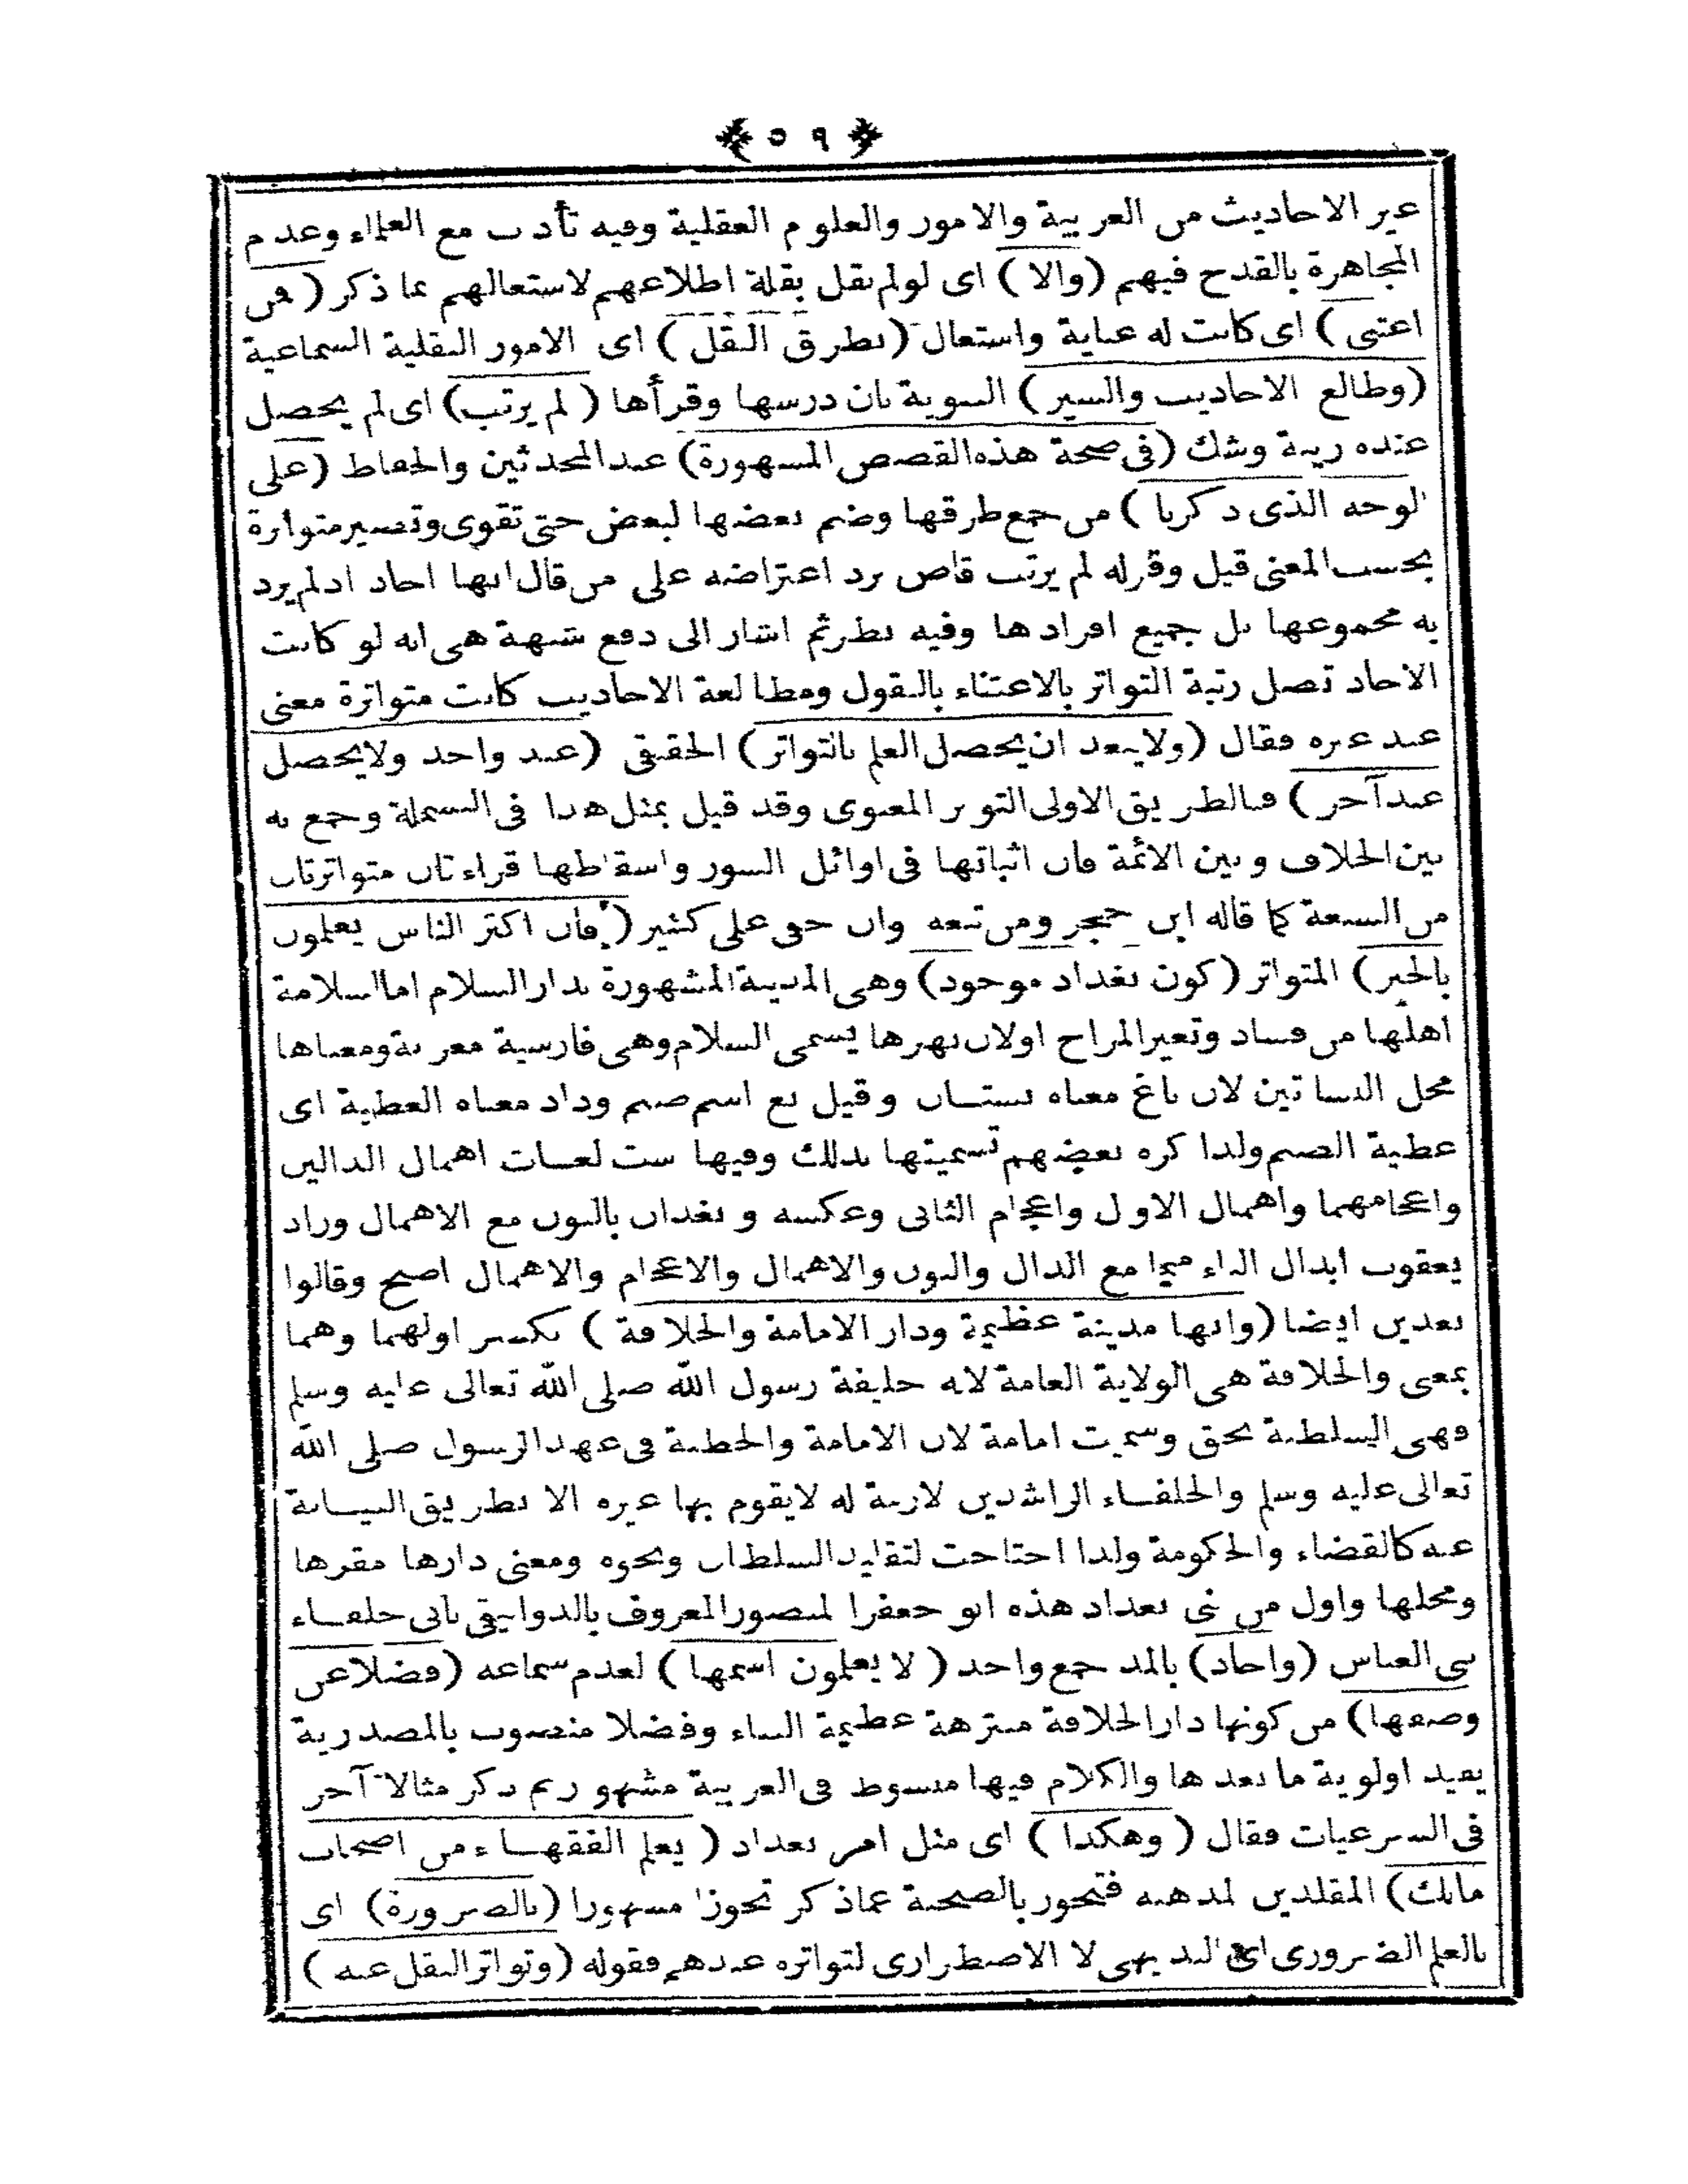 ﴿ ٥٩ ﴾
غير الاحاديث من العربية والامور والعلوم العقلية وفيه تأدب مع العلماء وعدم
المجاهرة بالقدح فيهم (والا) اى لولم نقل بقلة اطلاعهم لاستعمالهم بما ذكر (فمن
اعتنى) اى كانت له عناية واستعمال (بطرق النقل) اى الامور النقلية السماعية
(وطالع الاحاديث والسير) النبوية بان درسها وقرأها (لم يرتب) اى لم يحصل
عنده ريبة وشك (فى صحة هذه القصص المشهورة) عند المحدثين والحفاظ (على
الوجه الذى ذكرنا) من جمع طرقها وضم بعضها لبعض حتى تقوى وتصير متواترة
بحسب المعنى قيل وقوله لم يرتب قاض برد اعتراضه على من قال انها احاد اذ لم يرد
به مجموعها بل جميع افرادها وفيه نظر ثم اشار الى دفع شبهة هى انه لو كانت
الاحاد تصل رتبة التواتر بالاعتناء بالنقول ومطالعة الاحاديث كانت متواترة معنى
عند غيره فقال (ولا يبعد ان يحصل العلم بالتواتر) الحقيقى (عند واحد ولا يحصل
عند آخر) فبالطريق الاولى التواتر المعنوى وقد قيل بمثل هذا فى البسملة وجمع به
بين الخلاف وبين الائمة فان اثباتها فى اوائل السور واسقاطها قراءتان متواترتان
من السبعة كما قاله ابن حجر ومن تبعه وان خفى على كثير (فان اكثر الناس يعلمون
بالخبر) المتواتر (كون بغداد موجود) وهى المدينة المشهورة بدار السلام اما لسلامة
اهلها من فساد وتغير المزاج اولان نهرها يسمى السلام وهى فارسية معربة ومعناها
محل البساتين لان باغ معناه بستان وقيل بغ اسم صنم وداد معناه العطية اى
عطية الصنم ولذا كره بعضهم تسميتها بذلك وفيها ست لغات اهمال الدالين
واعجامهما واهمال الاول واعجام الثانى وعكسه وبغدان بالنون مع الاهمال وزاد
يعقوب ابدال الباء ميما مع الدال والنون والاهمال والاعجام والاهمال اصح وقالوا
بغدين ايضا (وانها مدينة عظيمة ودار الامامة والخلافة) بكسر اولهما وهما
بمعنى والخلافة هى الولاية العامة لانه خليفة رسول الله صلى الله تعالى عليه وسلم
فهى السلطنة بحق وسميت امامة لان الامامة والخطبة فى عهد الرسول صلى الله
تعالى عليه وسلم والخلفاء الراشدين لازمة له لا يقوم بها غيره الا بطريق النيابة
عنه كالقضاء والحكومة ولذا احتاجت لتقليد السلطان ونحوه ومعنى دارها مقرها
ومحلها واول من بنى بغداد هذه ابو جعفر المنصور المعروف بالدوانيقى ثانى خلفاء
بنى العباس (واحاد) بالمد جمع واحد (لا يعلمون اسمها) لعدم سماعه (فضلا عن
وصفها) من كونها دار الخلافة متنزهة عظيمة البناء وفضلا منصوب بالمصدرية
يفيد اولوية ما بعدها والكلام فيها مبسوط فى العربية مشهور ثم ذكر مثالا آخر
فى الشرعيات فقال (وهكذا) اى مثل امر بغداد (يعلم الفقهاء من اصحاب
مالك) المقلدين لمذهبه فتجوز بالصحبة عما ذكر تجوزا مشهورا (بالضرورة) اى
بالعلم الضرورى اى البديهى لا الاضطرارى لتواتره عندهم فقوله (وتواتر النقل عنه)